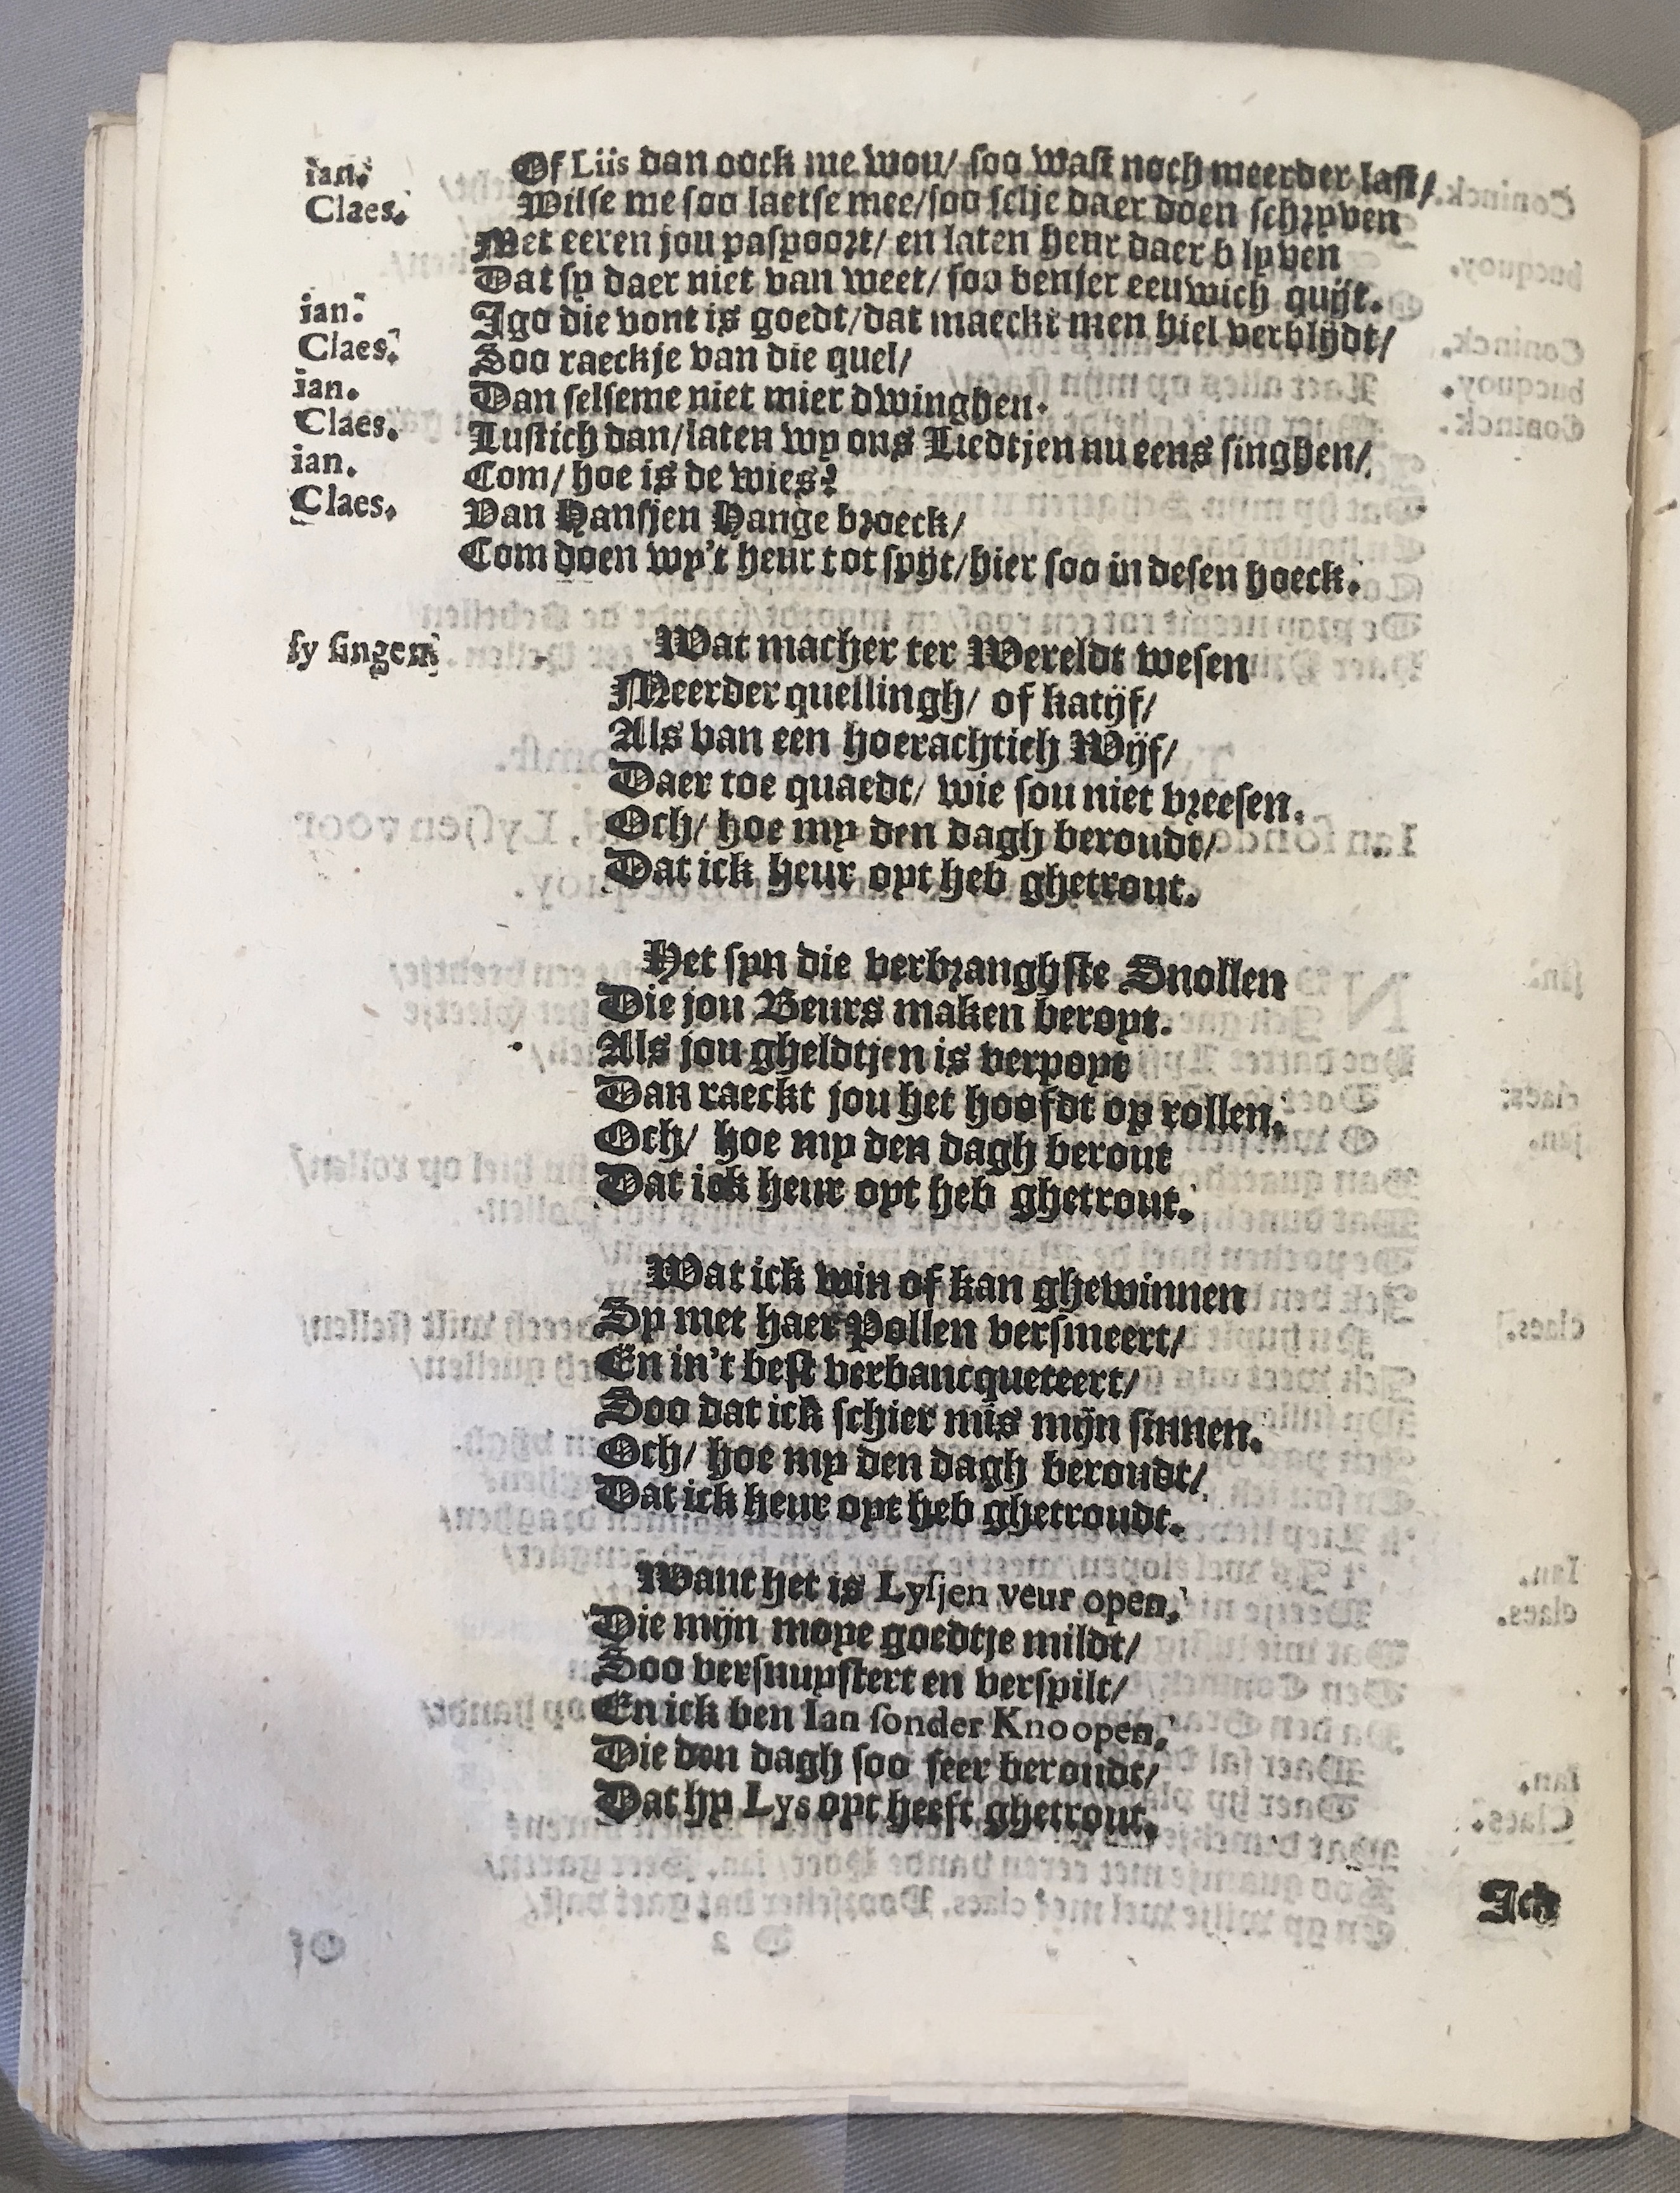 ian. Of Liis dan oock me wou/ soo wast noch meerder last/
Claes. Wilse me soo laetse mee/soo selje daer doen schryven
Met eeren jou paspoort/ en laten heur daer blyven
Dat sy daer niet van weet/ soo benjer eeuwich quijt.
ian. Jgo die vont is goedt/dat maeckt men hiel verblijdt/
Claes. Soo raeckje van die quel/
ian. Dan selseme niet mier dwinghen.
Claes. Lustich dan/laten wy ons Liedtjen nu eens singhen/
ian. Com/ hoe is de wies?
Claes. Van Hansjen Hange broeck/
Com doen wy't heur tot spijt/hier soo in desen hoeck.
sy singen Wat macher ter Wereldt wesen
Meerder quellingh/ of katijf/
Als van een hoerachtich Wijf/
Daer toe quaedt/ wie sou niet vreesen.
Och/ hoe my den dagh beroudt/
Dat ick heur oyt heb ghetrout.
Het syn die verbranghste Snollen
Die jou Beurs maken beroyt.
Als jou gheldtjen is verpoyt
Dan raeckt jou het hoofdt op rollen.
Och/ hoe my den dagh berout
Dat ick heur oyt heb ghetrout.
Wat ick win of kan ghewinnen
Sy met haer Pollen versmeert/
En in't best verbancqueteert/
Soo dat ick schier mis mijn sinnen.
Och/ hoe my den dagh beroudt/
Dat ick heur oyt heb ghetroudt.
Want het is Lysjen veur open,
Die mijn moye goedtje mildt/
Soo versnuystert en verspilt/
En ick ben Ian sonder Knoopen,
Die den dagh soo seer beroudt/
Dat hy Lys oyt heeft ghetrout.
Ick